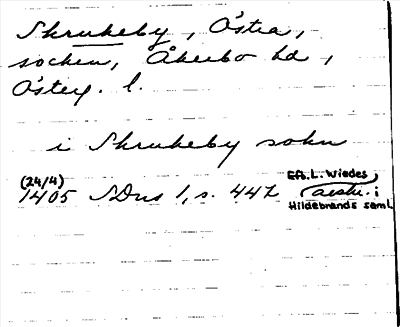 Skrukeby, Östra,
socken, Åkerbo hd,
Österg. l.
i Skrukeby sokn
(24/4)
1405 SDns 1, s. 447
Eft. L. Wiedes
avskr. i
Hildebrands saml.